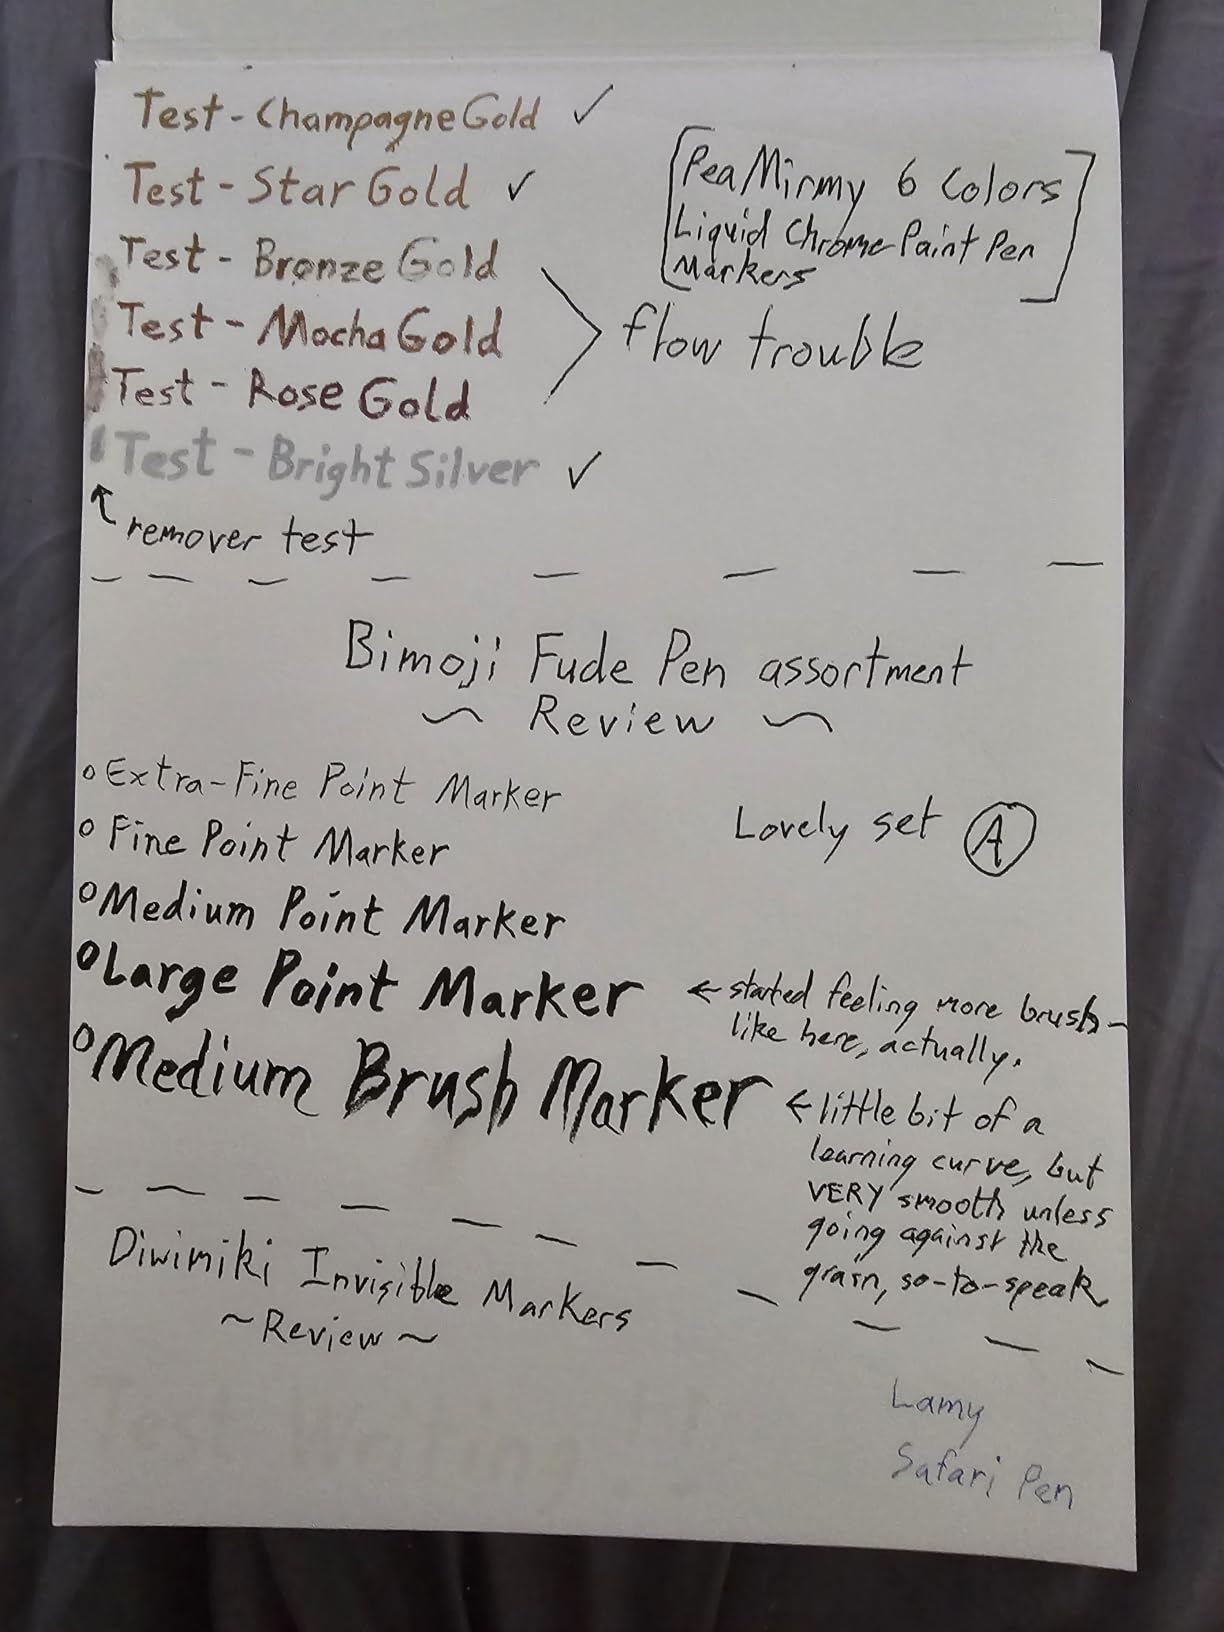 Test - Champagne Gold ✓
Test - Star Gold ✓
[PeaMirmy 6 Colors
Liquid Chrome Paint Pen
Markers]
Test - Bronze Gold
Test - Mocha Gold
Test - Rose Gold
> flow trouble
Test - Bright Silver ✓
↖ remover test
Bimoji Fude Pen assortment
~ Review ~
o Extra-Fine Point Marker
o Fine Point Marker
Lovely set Ⓐ
o Medium Point Marker
o Large Point Marker
← started feeling more brush-
like here, actually.
o Medium Brush Marker
← little bit of a
learning curve, but
VERY smooth unless
going against the
grain, so-to-speak
Diwimiki Invisible Markers
~ Review ~
Test Writing!!
Lamy
Safari Pen